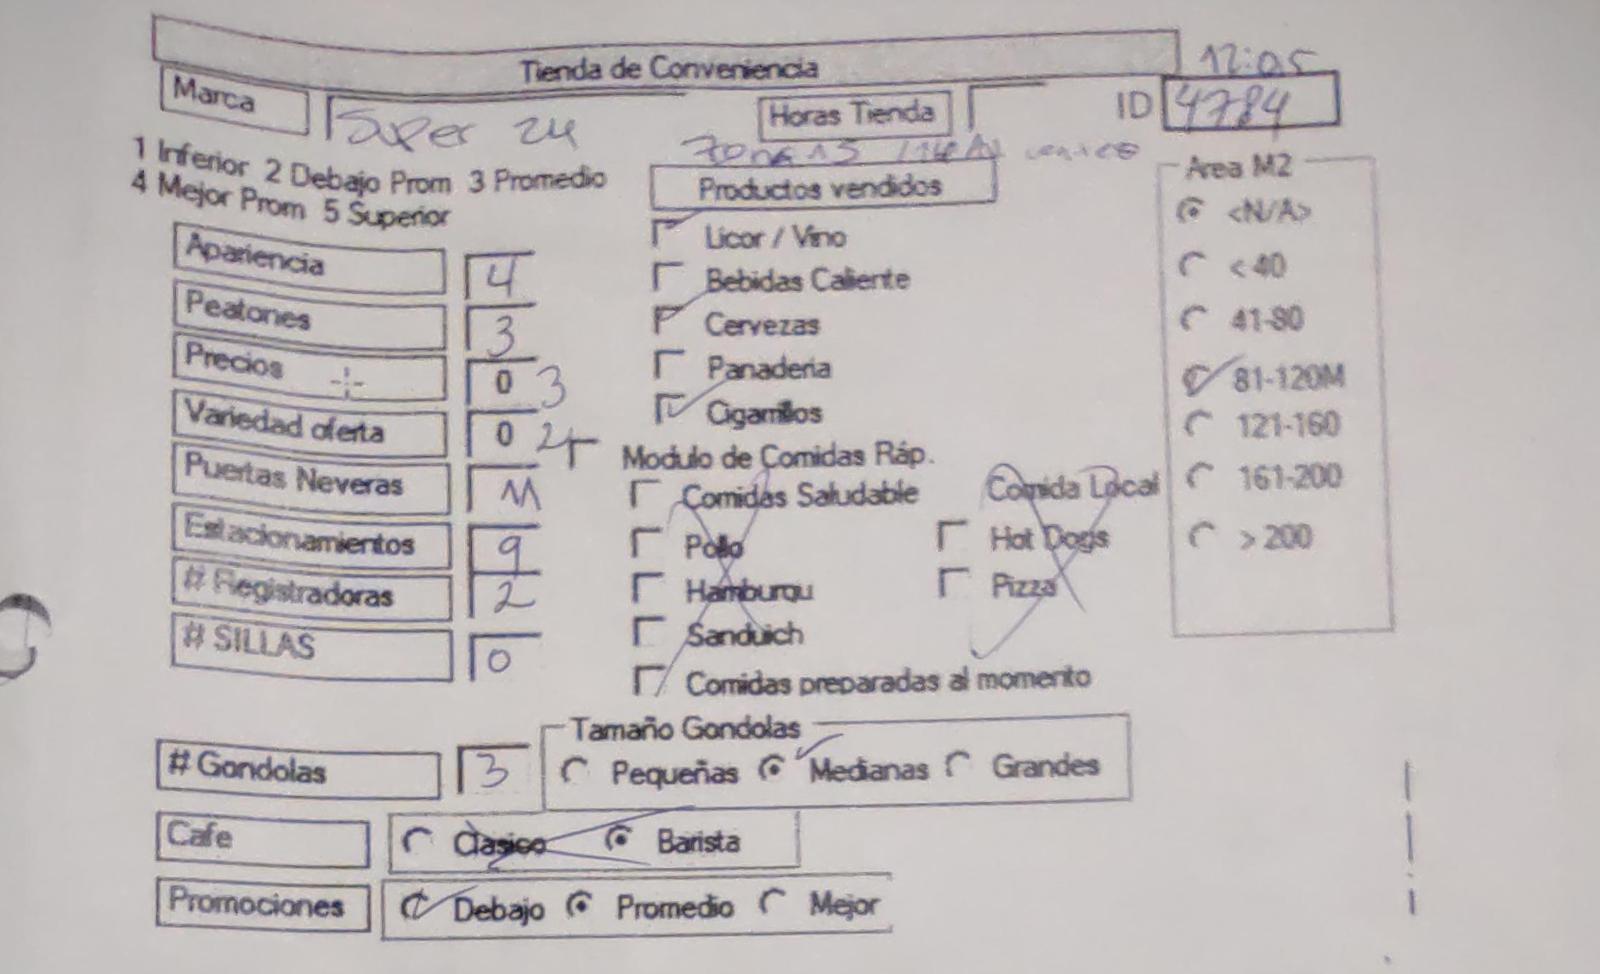 Tienda de Conveniencia
12:05
Marca Super 24 Horas Tienda ID 4784
zona 15
1 Inferior 2 Debajo Prom 3 Promedio
4 Mejor Prom 5 Superior
Apariencia 4
Peatones 3
Precios 0 3
Variedad oferta 0 2
Puertas Neveras 11
Estacionamientos 9
# Registradoras 2
# SILLAS 0
Productos vendidos
Licor / Vino
Bebidas Caliente
Cervezas
Panaderia
Cigarrillos
Modulo de Comidas Ráp.
Comidas Saludable Comida Local
Pollo Hot Dogs
Hamburqu Pizza
Sanduich
Comidas preparadas al momento
Area M2
<N/A>
< 40
41-80
81-120M
121-160
161-200
> 200
# Gondolas 3
Tamaño Gondolas
Pequeñas Medianas Grandes
Cafe Clasico Barista
Promociones Debajo Promedio Mejor